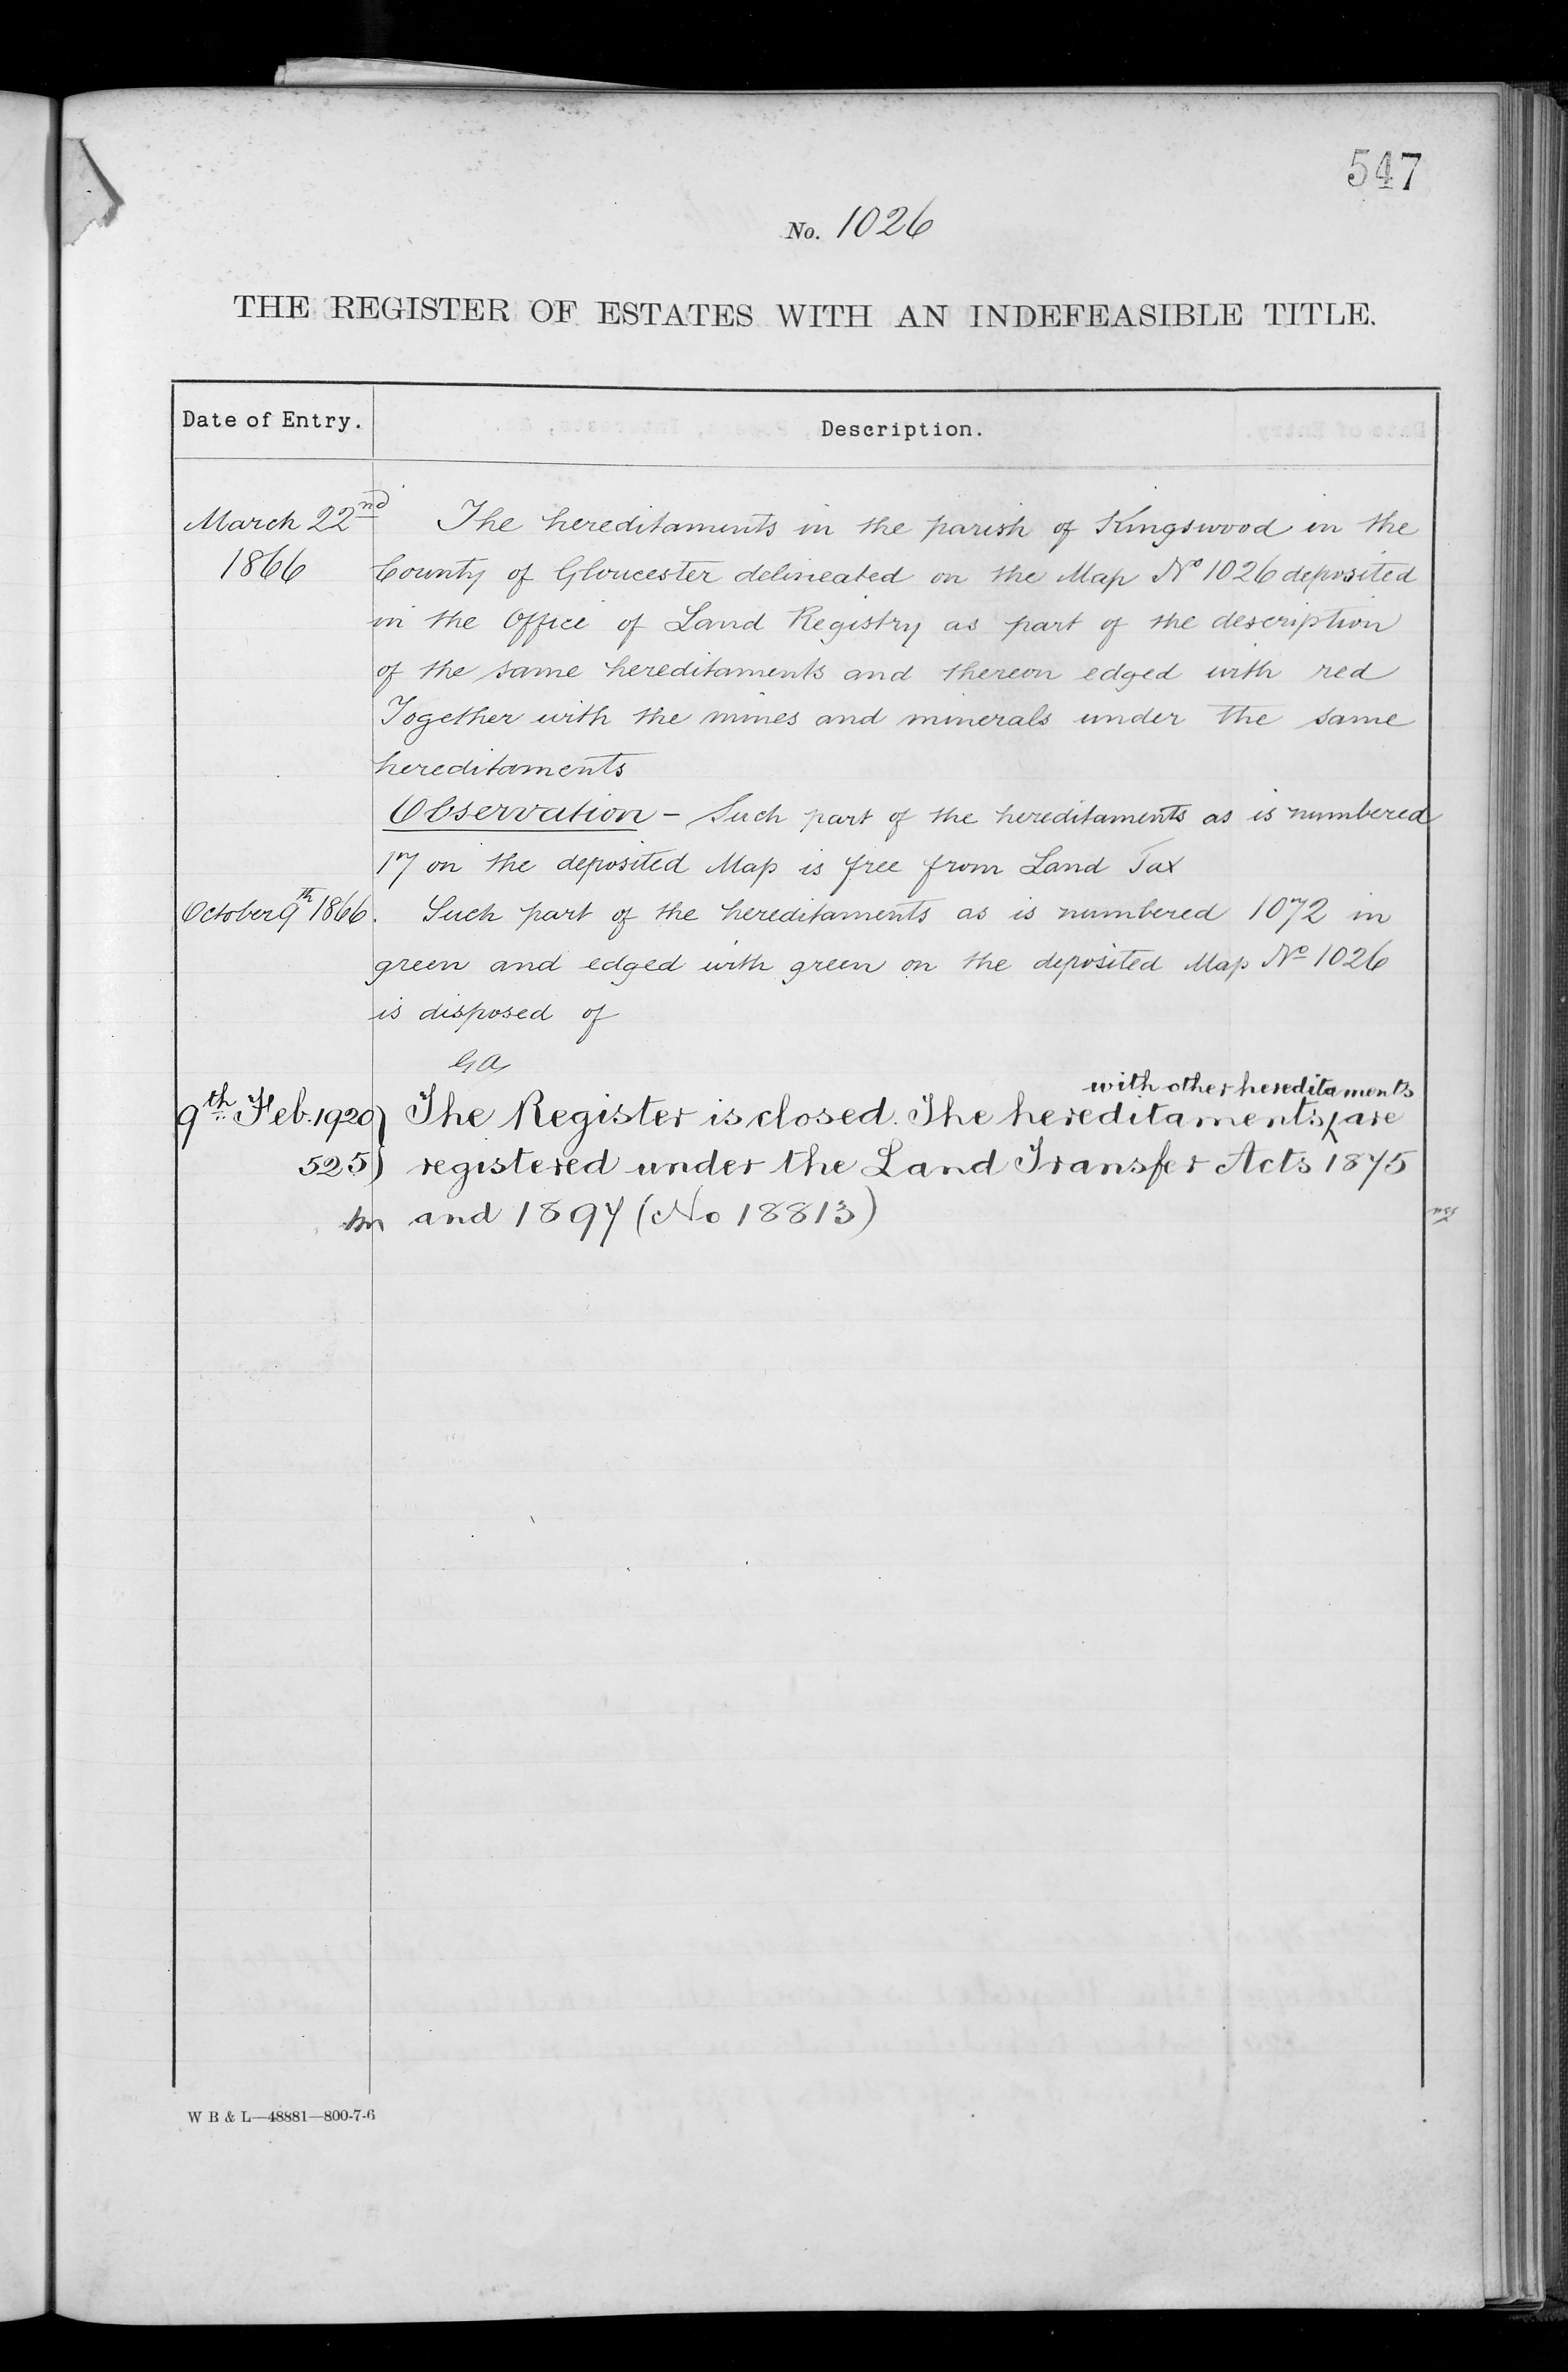 547
No. 1026
THE REGISTER OF ESTATES WITH AN INDEFEASIBLE TITLE.
Date of Entry.
Description.
March 22nd
1866
The hereditaments in the parish of Kingswood in the
County of Gloucester delineated on the Map No 1026 deposited
in the Office of Land Registry as part of the description
of the same hereditaments and thereon edged with red
Together with the mines and minerals under the same
hereditaments
Observation - Such part of the hereditaments as is numbered
17 on the deposited Map is free from Land Tax
October 9th 1866.
Such part of the hereditaments as is numbered 1072 in
green and edged with green on the deposited Map No 1026
is disposed of
GA
with other hereditaments
9th Feb. 1920) The Register is closed. The hereditaments^are
525) registered under the Land Transfer Acts 1875
and 1897 (No 18813)
W B & L—48881—800-7-6